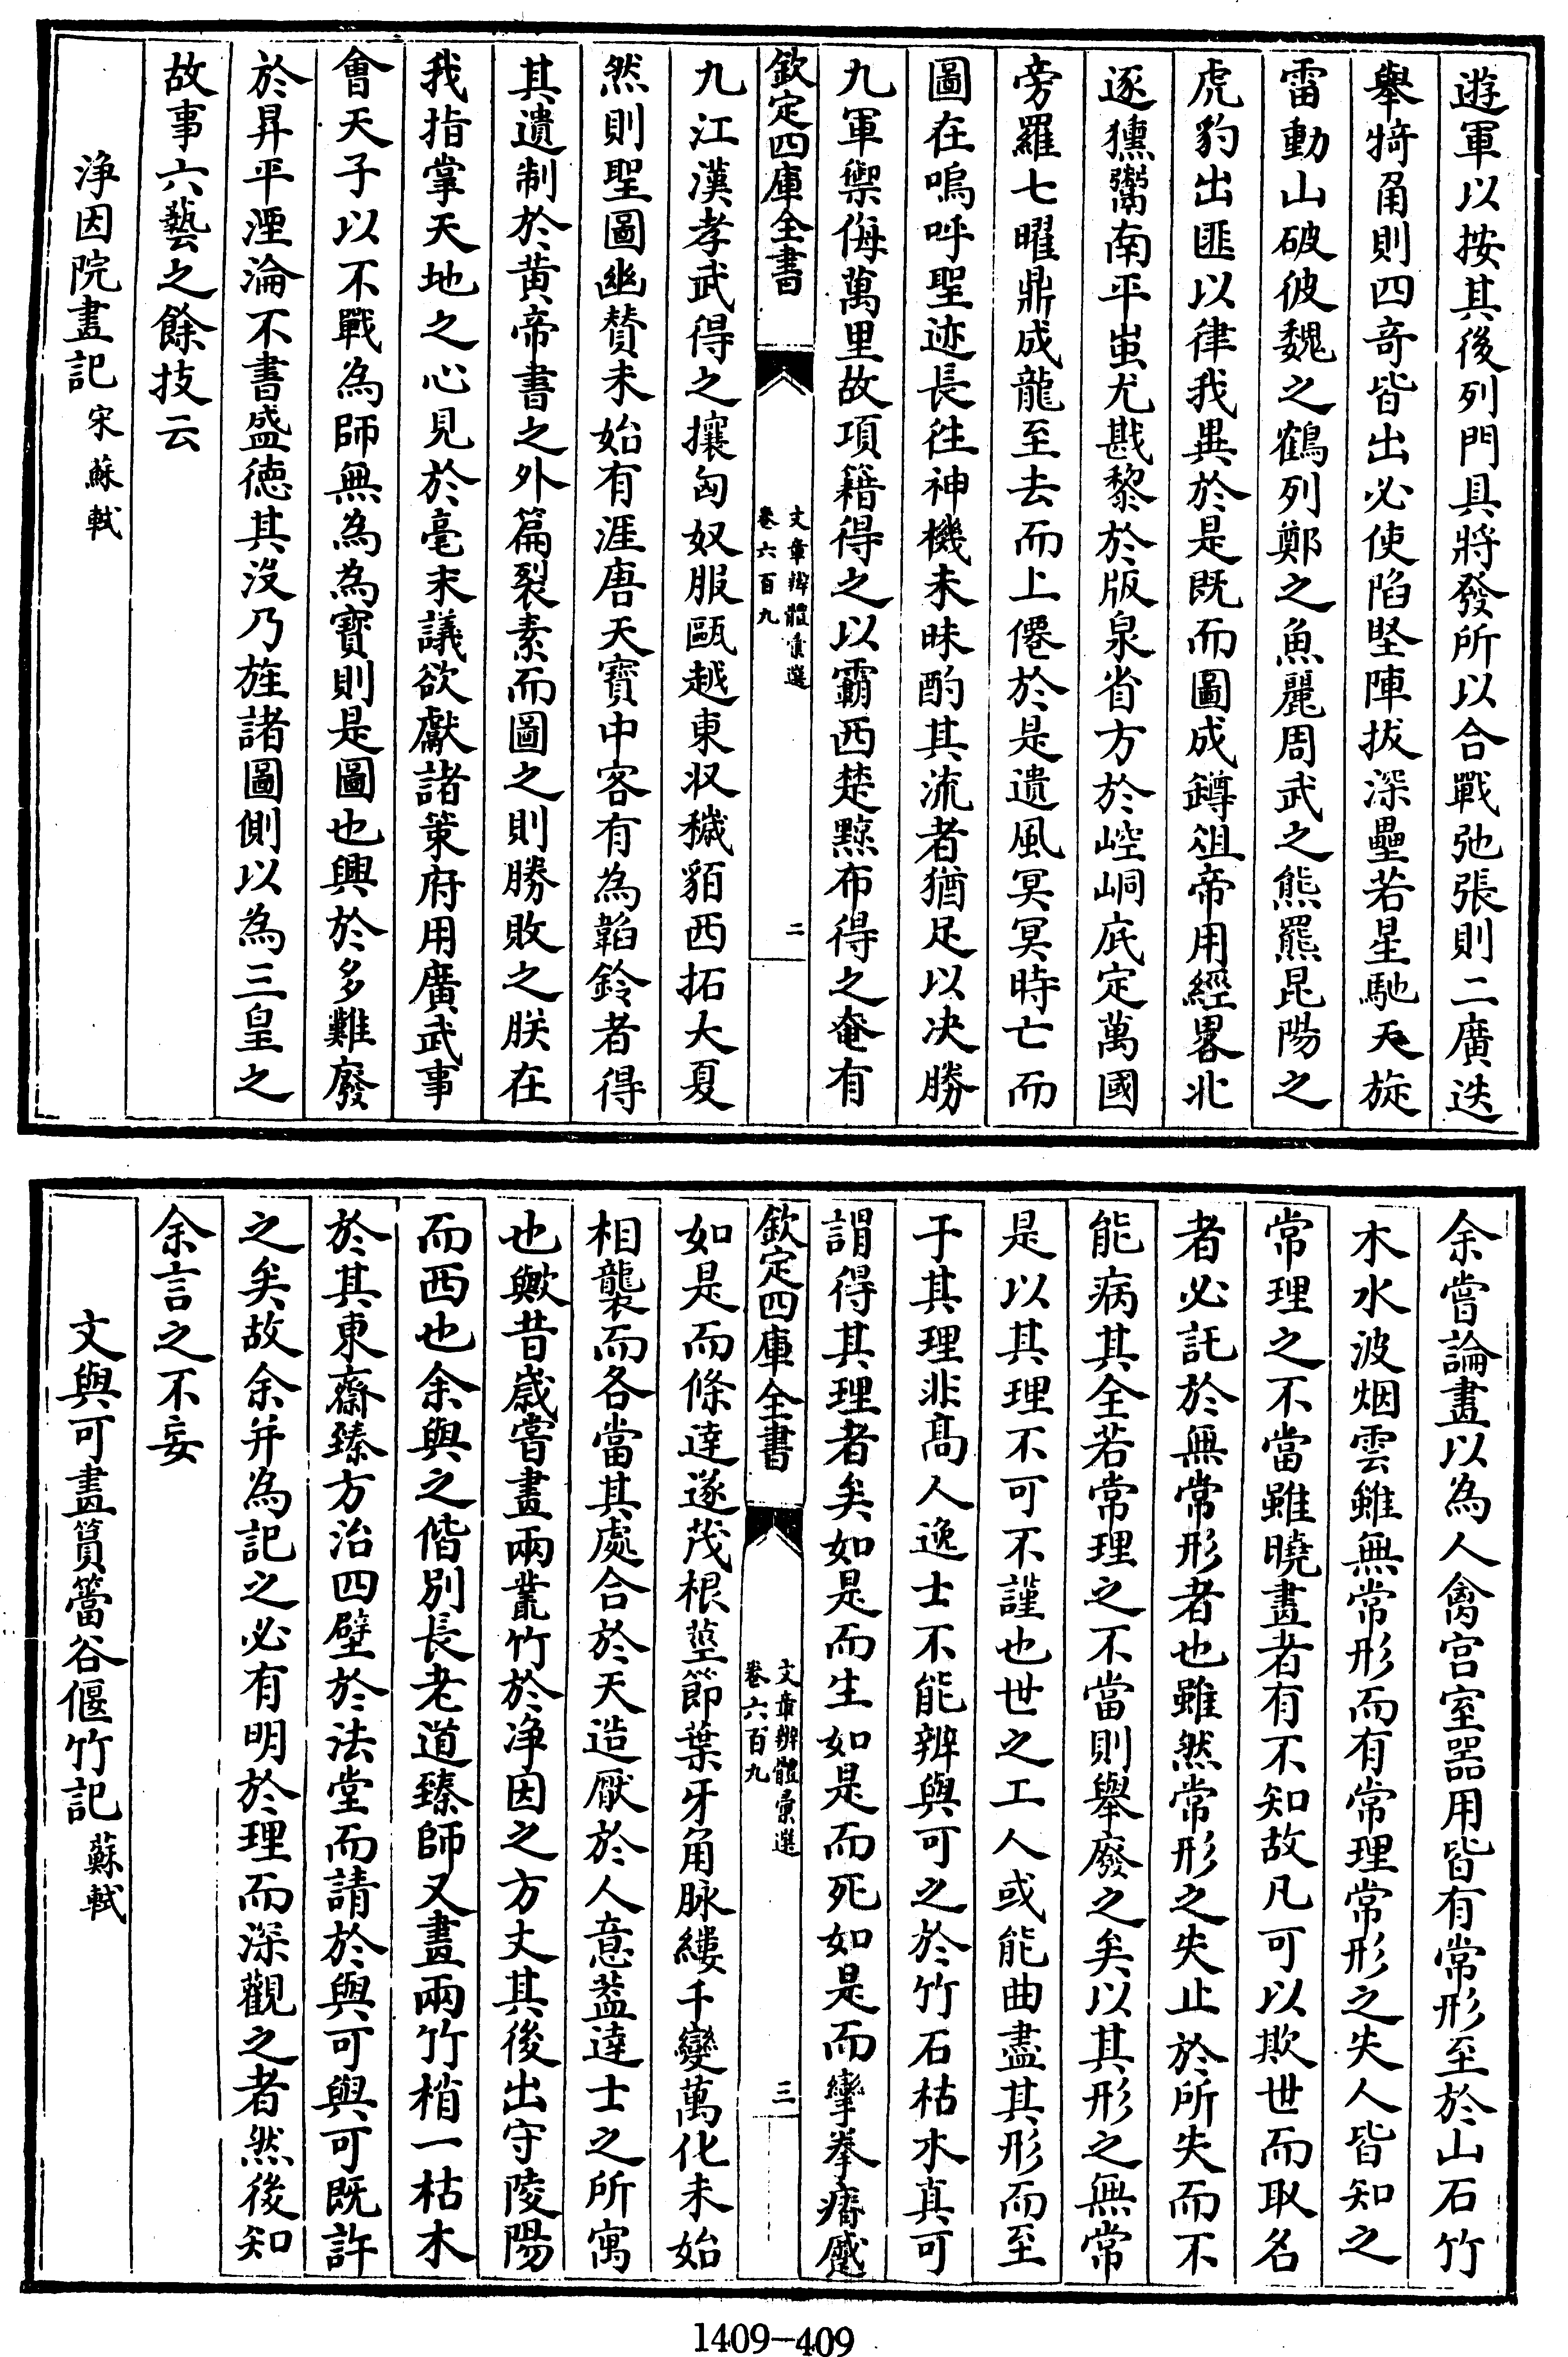 遊軍以按其後列門具將發所以合戰弛張則二廣迭
舉犄角則四奇皆出必使陷堅陣拔深壘若星馳天旋
雷動山破彼魏之鶴列鄭之魚麗周武之熊羆昆陽之
虎豹出匪以律我異於是既而圖成罇俎帝用經畧北
逐獯鬻南平蚩尤戡黎於版泉省方於崆峒底定萬國
旁羅七曜鼎成龍至去而上僊於是遺風冥冥時亡而
圖在嗚呼聖迹長往神機未昧酌其流者猶足以决勝
九軍禦侮萬里故項籍得之以霸西楚黥布得之奄有
欽定四庫全書
文章辨體彙選
卷六百九
二
九江漢孝武得之攘匈奴服甌越東収穢貊西拓大夏
然則聖圖幽賛未始有涯唐天寶中客有為韜鈐者得
其遺制於黄帝書之外篇裂素而圖之則勝敗之朕在
我指掌天地之心見於毫末議欲獻諸策府用廣武事
會天子以不戰為師無為為寶則是圖也興於多難廢
於昇平湮淪不書盛徳其沒乃旌諸圖側以為三皇之
故事六藝之餘技云
浄因院畫記 宋蘇軾
余嘗論畫以為人禽宫室器用皆有常形至於山石竹
木水波烟雲雖無常形而有常理常形之失人皆知之
常理之不當雖曉畫者有不知故凡可以欺世而取名
者必託於無常形者也雖然常形之失止於所失而不
能病其全若常理之不當則舉廢之矣以其形之無常
是以其理不可不謹也世之工人或能曲盡其形而至
于其理非髙人逸士不能辨與可之於竹石枯木真可
謂得其理者矣如是而生如是而死如是而攣拳瘠蹙
欽定四庫全書
文章辨體彙選
卷六百九
三
如是而條達遂茂根莖節葉牙角脉縷千變萬化未始
相襲而各當其處合於天造厭於人意葢達士之所寓
也歟昔歲嘗畫兩叢竹於浄因之方丈其後出守陵陽
而西也余與之偕別長老道臻師又畫兩竹梢一枯木
於其東齋臻方治四壁於法堂而請於與可與可既許
之矣故余并為記之必有明於理而深觀之者然後知
余言之不妄
文與可畫篔簹谷偃竹記 蘇軾
1409-409